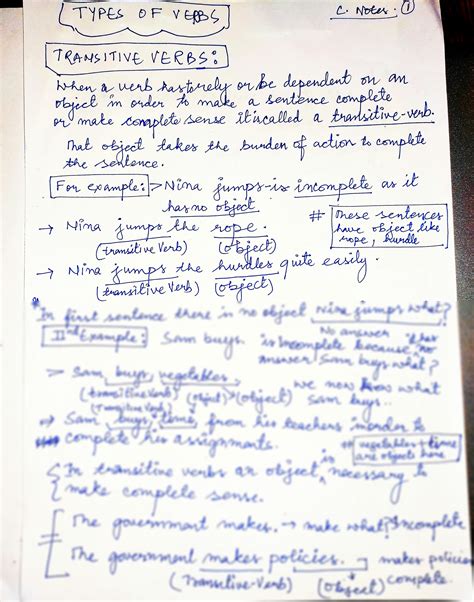 TYPES OF VERBS
C. Notes. 1
TRANSITIVE VERBS:
When a verb has to rely or be dependent on an
object in order to make a sentence complete
or make complete sense it is called a transitive-verb.
That object takes the burden of action to complete
the sentence.
For example: > Nina jumps-is incomplete as it
has no object
→ Nina jumps the rope.
(transitive Verb) (object)
# These sentences
have object like
rope, hurdle
→ Nina jumps the hurdles quite easily.
(transitive Verb) (object)
* In first sentence there is no object Nina jumps what?
No answer
IInd Example: Sam buys. is incomplete because it has no
answer Sam buys what?
> Sam buys vegetables
(transitive Verb) (object) > (object)
we now know what
Sam buys..
(Transitive Verb)
→ Sam buys time from his teachers inorder to
complete his assignments.
# vegetables + time
are objects here
In transitive verbs an object is necessary to
make complete sense.
The government makes. → make what? Incomplete
The government makes policies. → makes policies
complete.
(Transitive-Verb) (object)